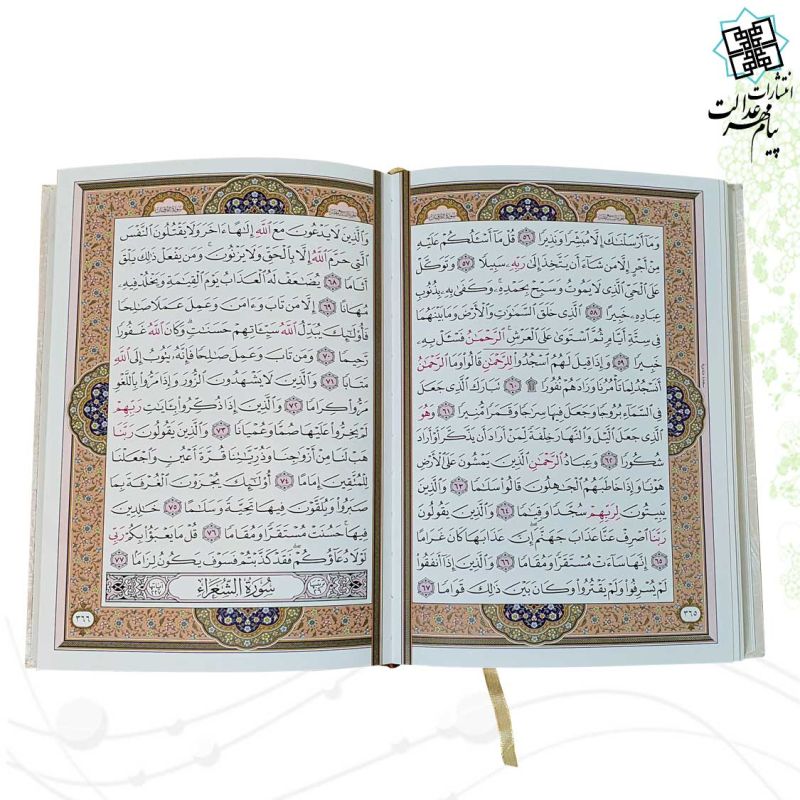 انتشارات
پیام مهر عدالت
وَمَآ أَرْسَلْنَٰكَ إِلَّا مُبَشِّرًا وَنَذِيرًا ٥٦ قُلْ مَآ أَسْـَٔلُكُمْ عَلَيْهِ
مِنْ أَجْرٍ إِلَّا مَن شَآءَ أَن يَتَّخِذَ إِلَىٰ رَبِّهِۦ سَبِيلًا ٥٧ وَتَوَكَّلْ
عَلَى ٱلْحَىِّ ٱلَّذِى لَا يَمُوتُ وَسَبِّحْ بِحَمْدِهِۦ وَكَفَىٰ بِهِۦ بِذُنُوبِ
عِبَادِهِۦ خَبِيرًا ٥٨ ٱلَّذِى خَلَقَ ٱلسَّمَٰوَٰتِ وَٱلْأَرْضَ وَمَا بَيْنَهُمَا
فِى سِتَّةِ أَيَّامٍ ثُمَّ ٱسْتَوَىٰ عَلَى ٱلْعَرْشِ ٱلرَّحْمَٰنُ فَسْـَٔلْ بِهِۦ
خَبِيرًا ٥٩ وَإِذَا قِيلَ لَهُمُ ٱسْجُدُوا۟ لِلرَّحْمَٰنِ قَالُوا۟ وَمَا ٱلرَّحْمَٰنُ
أَنَسْجُدُ لِمَا تَأْمُرُنَا وَزَادَهُمْ نُفُورًا ۩ ٦٠ تَبَارَكَ ٱلَّذِى جَعَلَ
فِى ٱلسَّمَآءِ بُرُوجًا وَجَعَلَ فِيهَا سِرَٰجًا وَقَمَرًا مُّنِيرًا ٦١ وَهُوَ
ٱلَّذِى جَعَلَ ٱلَّيْلَ وَٱلنَّهَارَ خِلْفَةً لِّمَنْ أَرَادَ أَن يَذَّكَّرَ أَوْ أَرَادَ
شُكُورًا ٦٢ وَعِبَادُ ٱلرَّحْمَٰنِ ٱلَّذِينَ يَمْشُونَ عَلَى ٱلْأَرْضِ
هَوْنًا وَإِذَا خَاطَبَهُمُ ٱلْجَٰهِلُونَ قَالُوا۟ سَلَٰمًا ٦٣ وَٱلَّذِينَ
يَبِيتُونَ لِرَبِّهِمْ سُجَّدًا وَقِيَٰمًا ٦٤ وَٱلَّذِينَ يَقُولُونَ
رَبَّنَا ٱصْرِفْ عَنَّا عَذَابَ جَهَنَّمَ إِنَّ عَذَابَهَا كَانَ غَرَامًا
٦٥ إِنَّهَا سَآءَتْ مُسْتَقَرًّا وَمُقَامًا ٦٦ وَٱلَّذِينَ إِذَآ أَنفَقُوا۟
لَمْ يُسْرِفُوا۟ وَلَمْ يَقْتُرُوا۟ وَكَانَ بَيْنَ ذَٰلِكَ قَوَامًا ٦٧
٣٦٥
وَٱلَّذِينَ لَا يَدْعُونَ مَعَ ٱللَّهِ إِلَٰهًا ءَاخَرَ وَلَا يَقْتُلُونَ ٱلنَّفْسَ
ٱلَّتِى حَرَّمَ ٱللَّهُ إِلَّا بِٱلْحَقِّ وَلَا يَزْنُونَ وَمَن يَفْعَلْ ذَٰلِكَ يَلْقَ
أَثَامًا ٦٨ يُضَٰعَفْ لَهُ ٱلْعَذَابُ يَوْمَ ٱلْقِيَٰمَةِ وَيَخْلُدْ فِيهِۦ
مُهَانًا ٦٩ إِلَّا مَن تَابَ وَءَامَنَ وَعَمِلَ عَمَلًا صَٰلِحًا
فَأُو۟لَٰٓئِكَ يُبَدِّلُ ٱللَّهُ سَيِّـَٔاتِهِمْ حَسَنَٰتٍ وَكَانَ ٱللَّهُ غَفُورًا
رَّحِيمًا ٧٠ وَمَن تَابَ وَعَمِلَ صَٰلِحًا فَإِنَّهُۥ يَتُوبُ إِلَى ٱللَّهِ
مَتَابًا ٧١ وَٱلَّذِينَ لَا يَشْهَدُونَ ٱلزُّورَ وَإِذَا مَرُّوا۟ بِٱللَّغْوِ
مَرُّوا۟ كِرَامًا ٧٢ وَٱلَّذِينَ إِذَا ذُكِّرُوا۟ بِـَٔايَٰتِ رَبِّهِمْ
لَمْ يَخِرُّوا۟ عَلَيْهَا صُمًّا وَعُمْيَانًا ٧٣ وَٱلَّذِينَ يَقُولُونَ رَبَّنَا
هَبْ لَنَا مِنْ أَزْوَٰجِنَا وَذُرِّيَّٰتِنَا قُرَّةَ أَعْيُنٍ وَٱجْعَلْنَا
لِلْمُتَّقِينَ إِمَامًا ٧٤ أُو۟لَٰٓئِكَ يُجْزَوْنَ ٱلْغُرْفَةَ بِمَا
صَبَرُوا۟ وَيُلَقَّوْنَ فِيهَا تَحِيَّةً وَسَلَٰمًا ٧٥ خَٰلِدِينَ
فِيهَا حَسُنَتْ مُسْتَقَرًّا وَمُقَامًا ٧٦ قُلْ مَا يَعْبَؤُا۟ بِكُمْ رَبِّى
لَوْلَا دُعَآؤُكُمْ فَقَدْ كَذَّبْتُمْ فَسَوْفَ يَكُونُ لِزَامًا ٧٧
سُورَةُ الشُّعَرَاءِ
٣٦٦